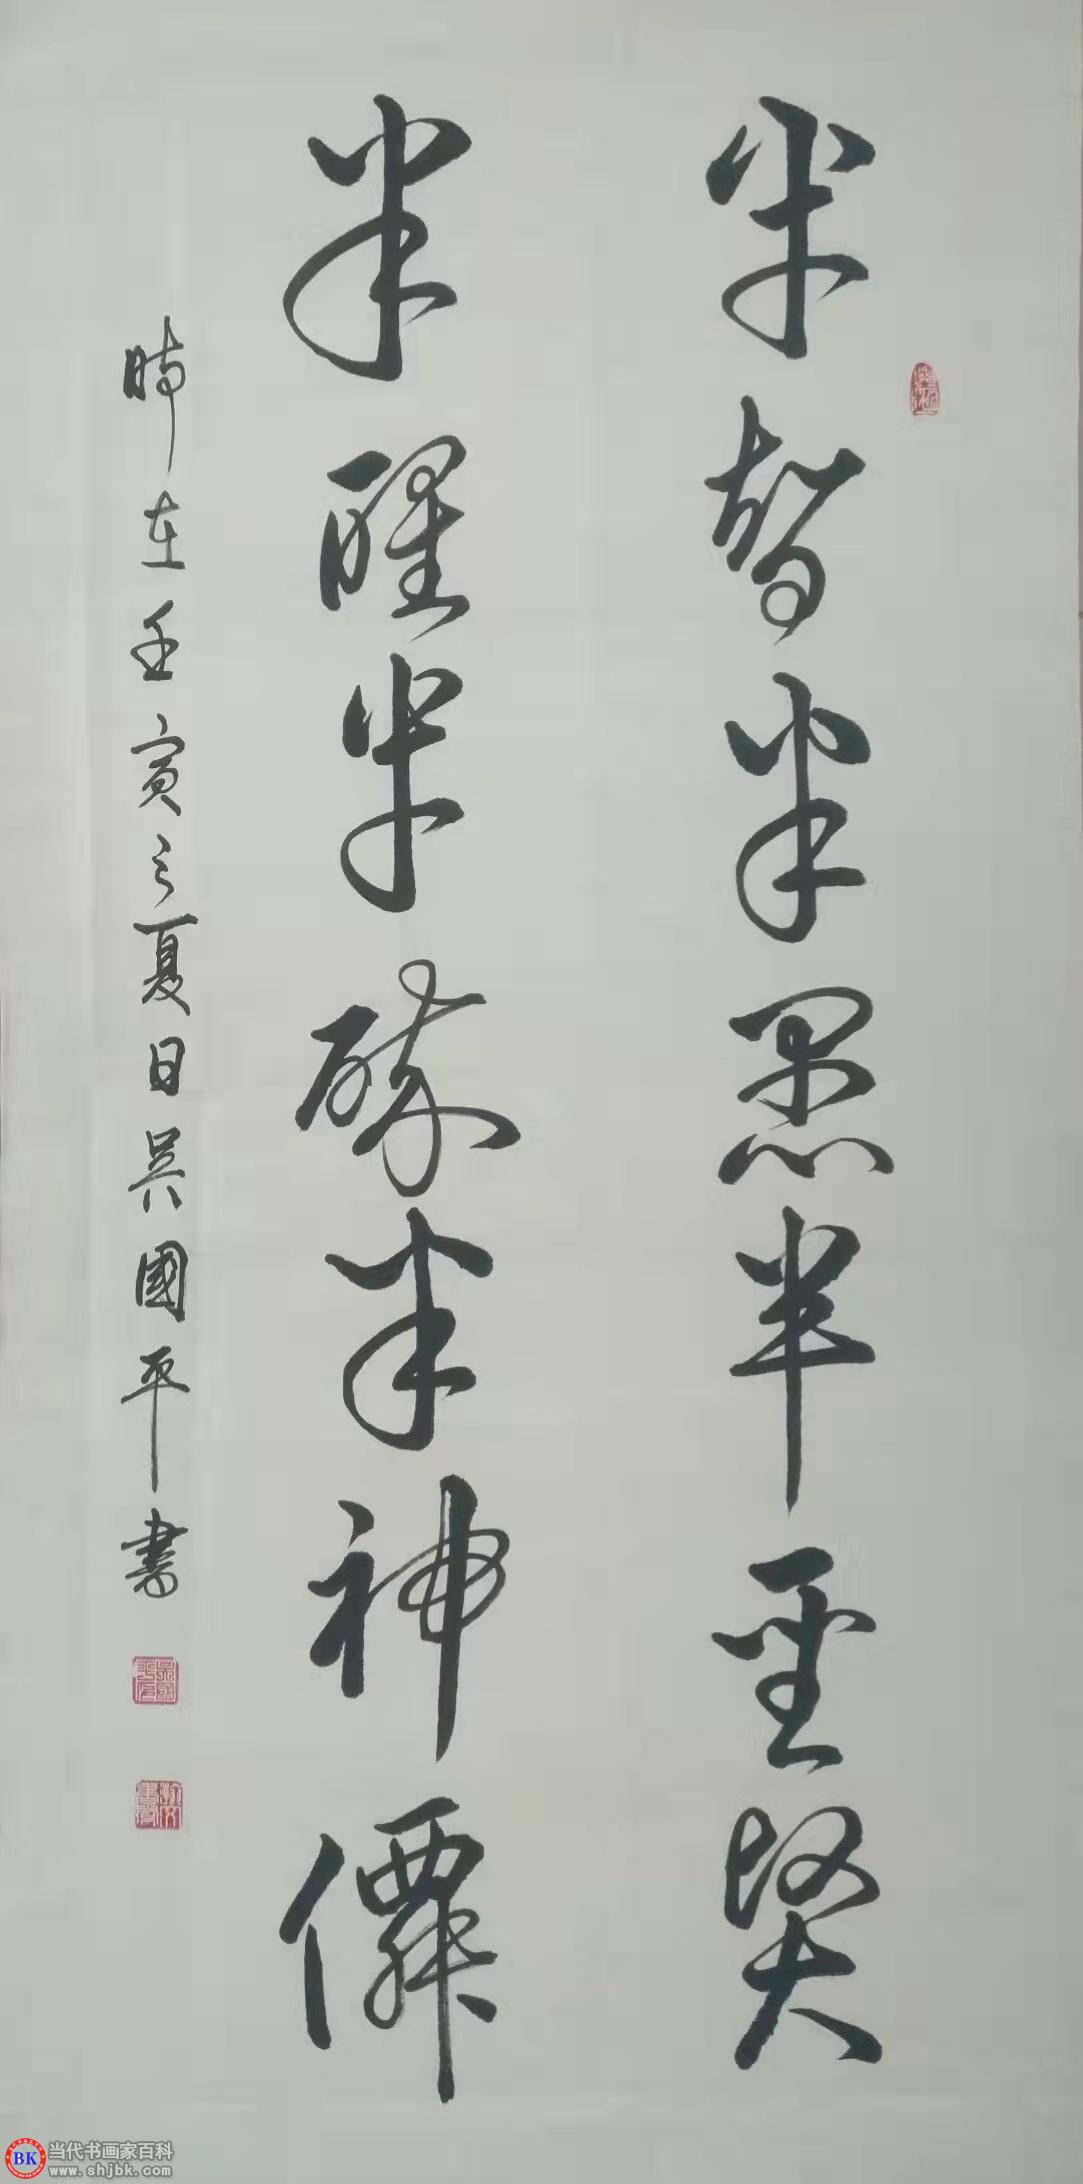 半智半愚半圣贤
半醒半醉半神僊
時在壬寅之夏日吳國平書
BK 当代书画家百科
www.shjbk.com